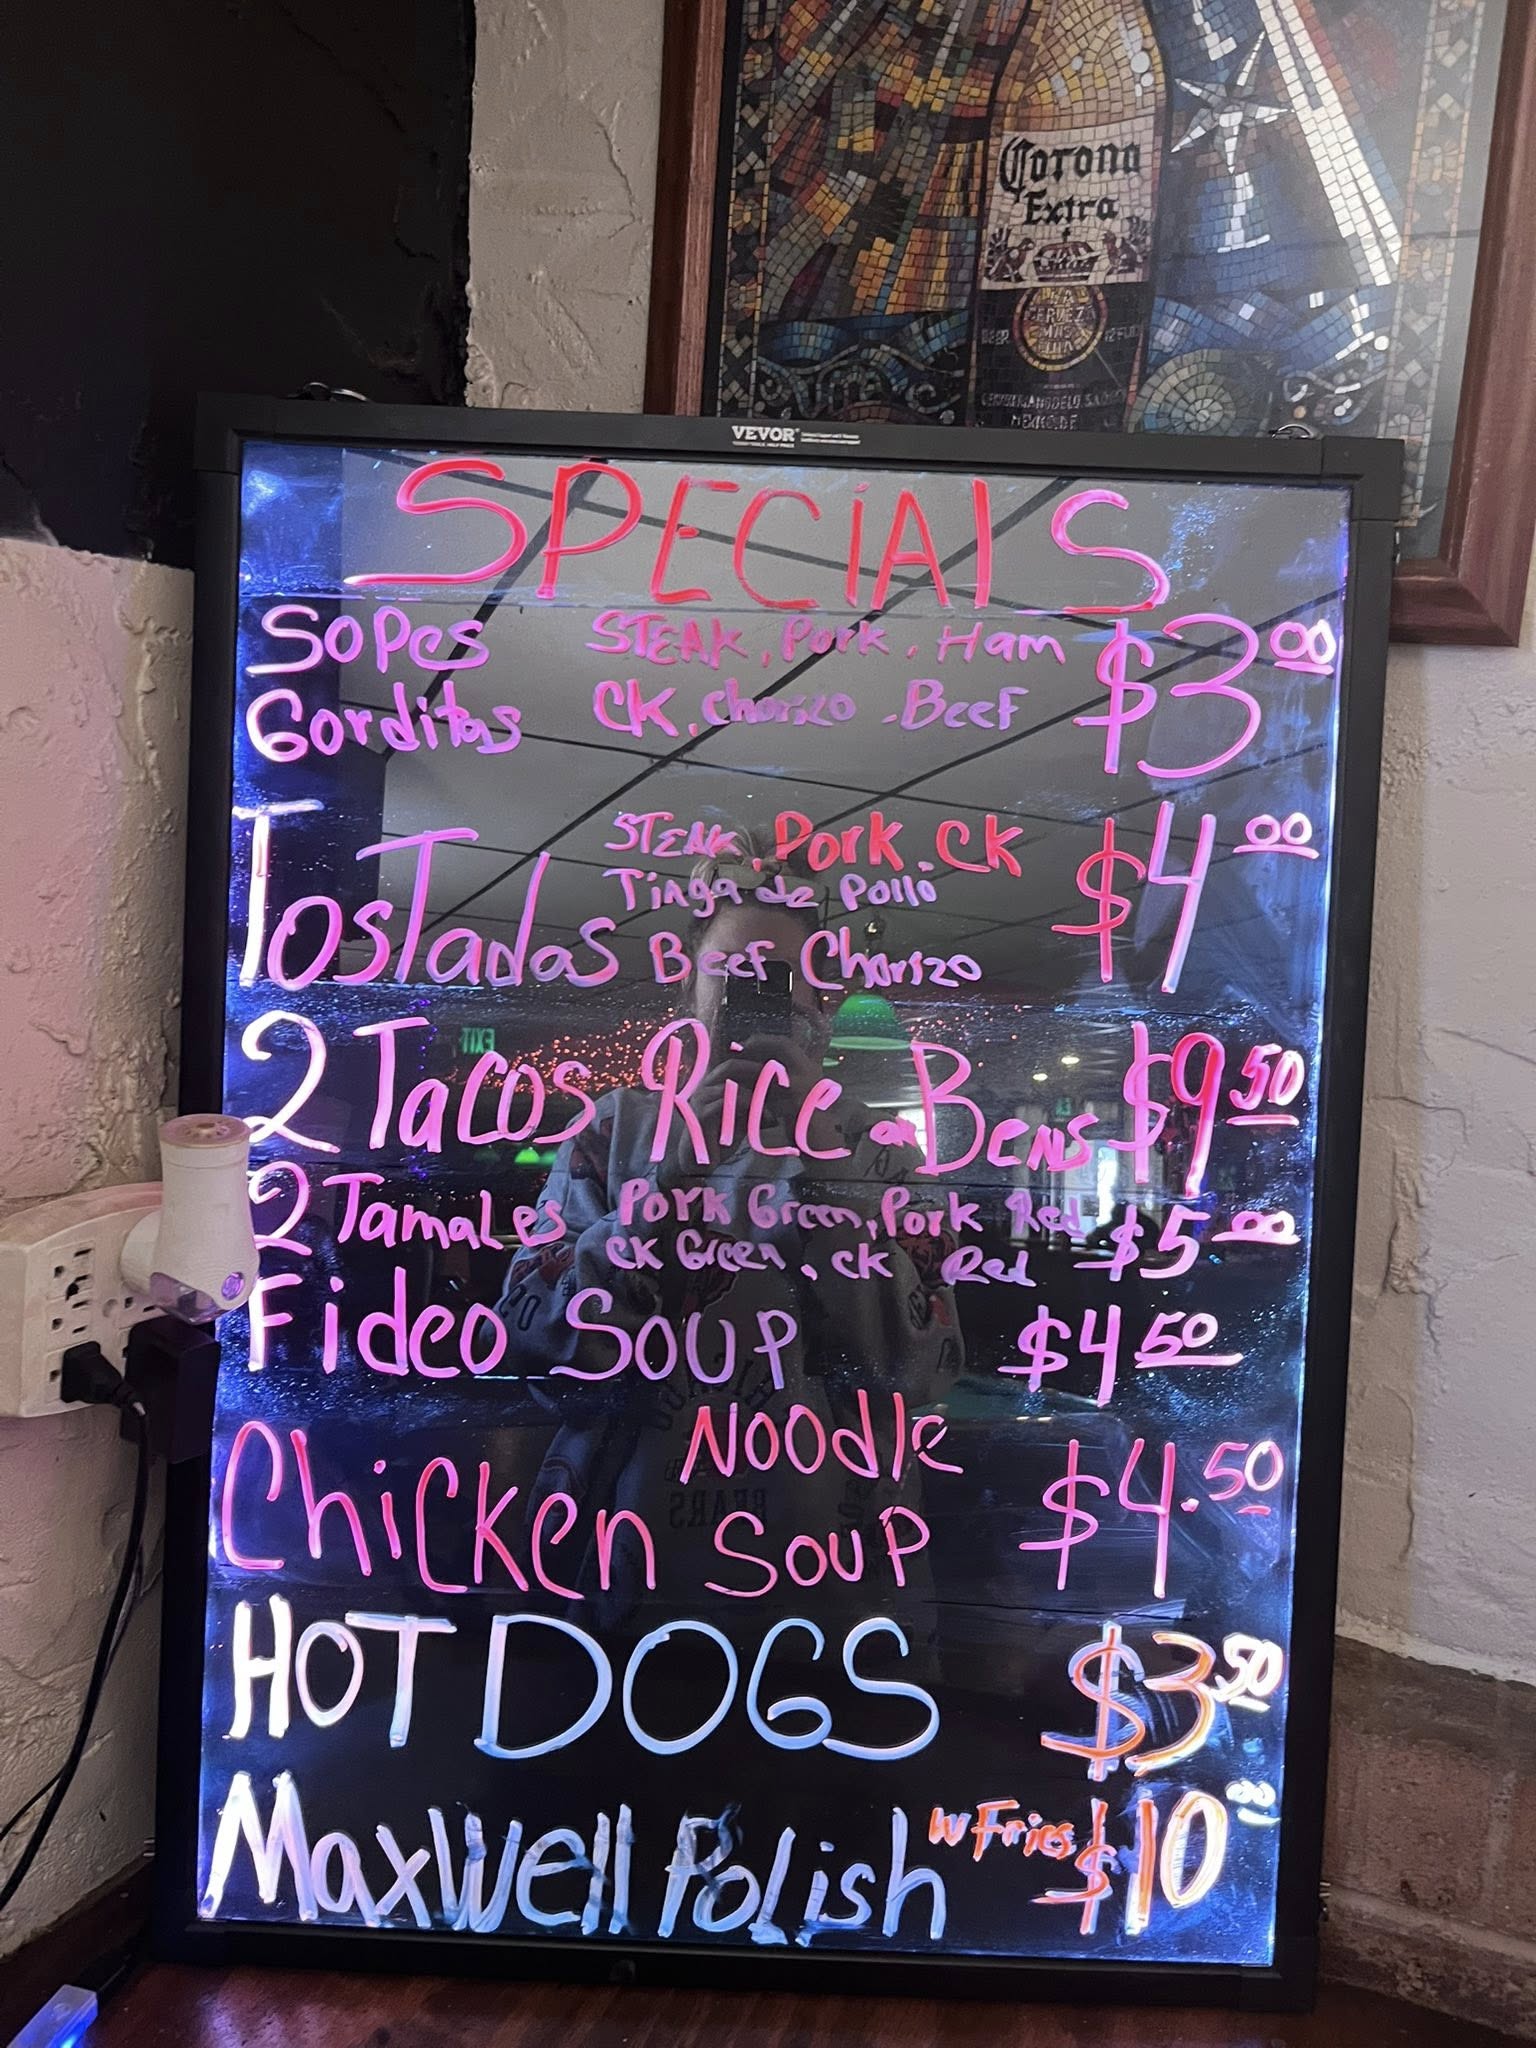 Corona
Extra
LA
CERVEZA
MAS
FINA
BEER
VEVOR
SPECiAlS
Sopes STEAK, Pork, Ham $3.00
Gorditas CK, Chorizo, Beef
Tostadas STEAK, Pork, CK $4.00
Tinga de Pollo
Beef Chorizo
2 Tacos Rice or Bens $9.50
2 Tamales Pork Green, Pork Red $5.00
CK Green, CK Red
Fideo Soup $4.50
Chicken Noodle Soup $4.50
HOT DOGS $3.50
Maxwell Polish w Fries $10.00
EXIT
BEARS